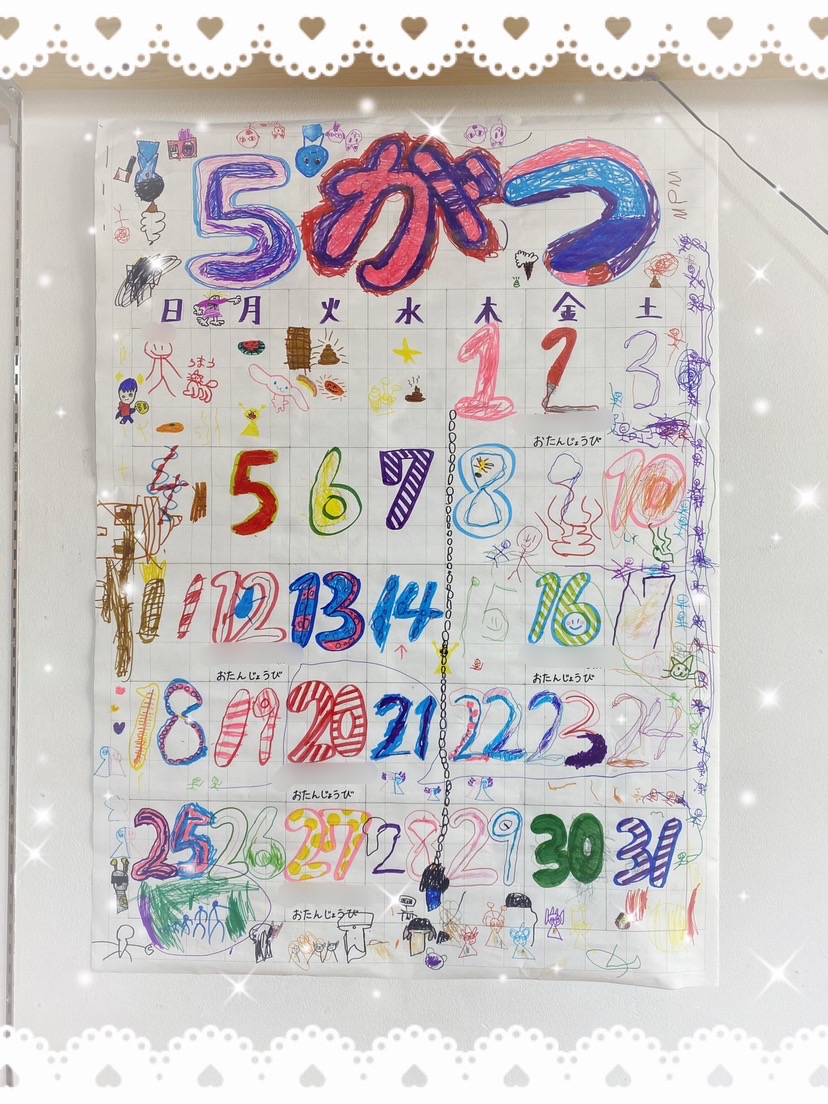 5がつ
MPM
日 月 火 水 木 金 土
うまうう
1 2 3
おたんじょうび
4 5 6 7 8 9 10
11 12 13 14 15 16 17
おたんじょうび おたんじょうび
18 19 20 21 22 23 24
おたんじょうび
25 26 27 28 29 30 31
おたんじょうび